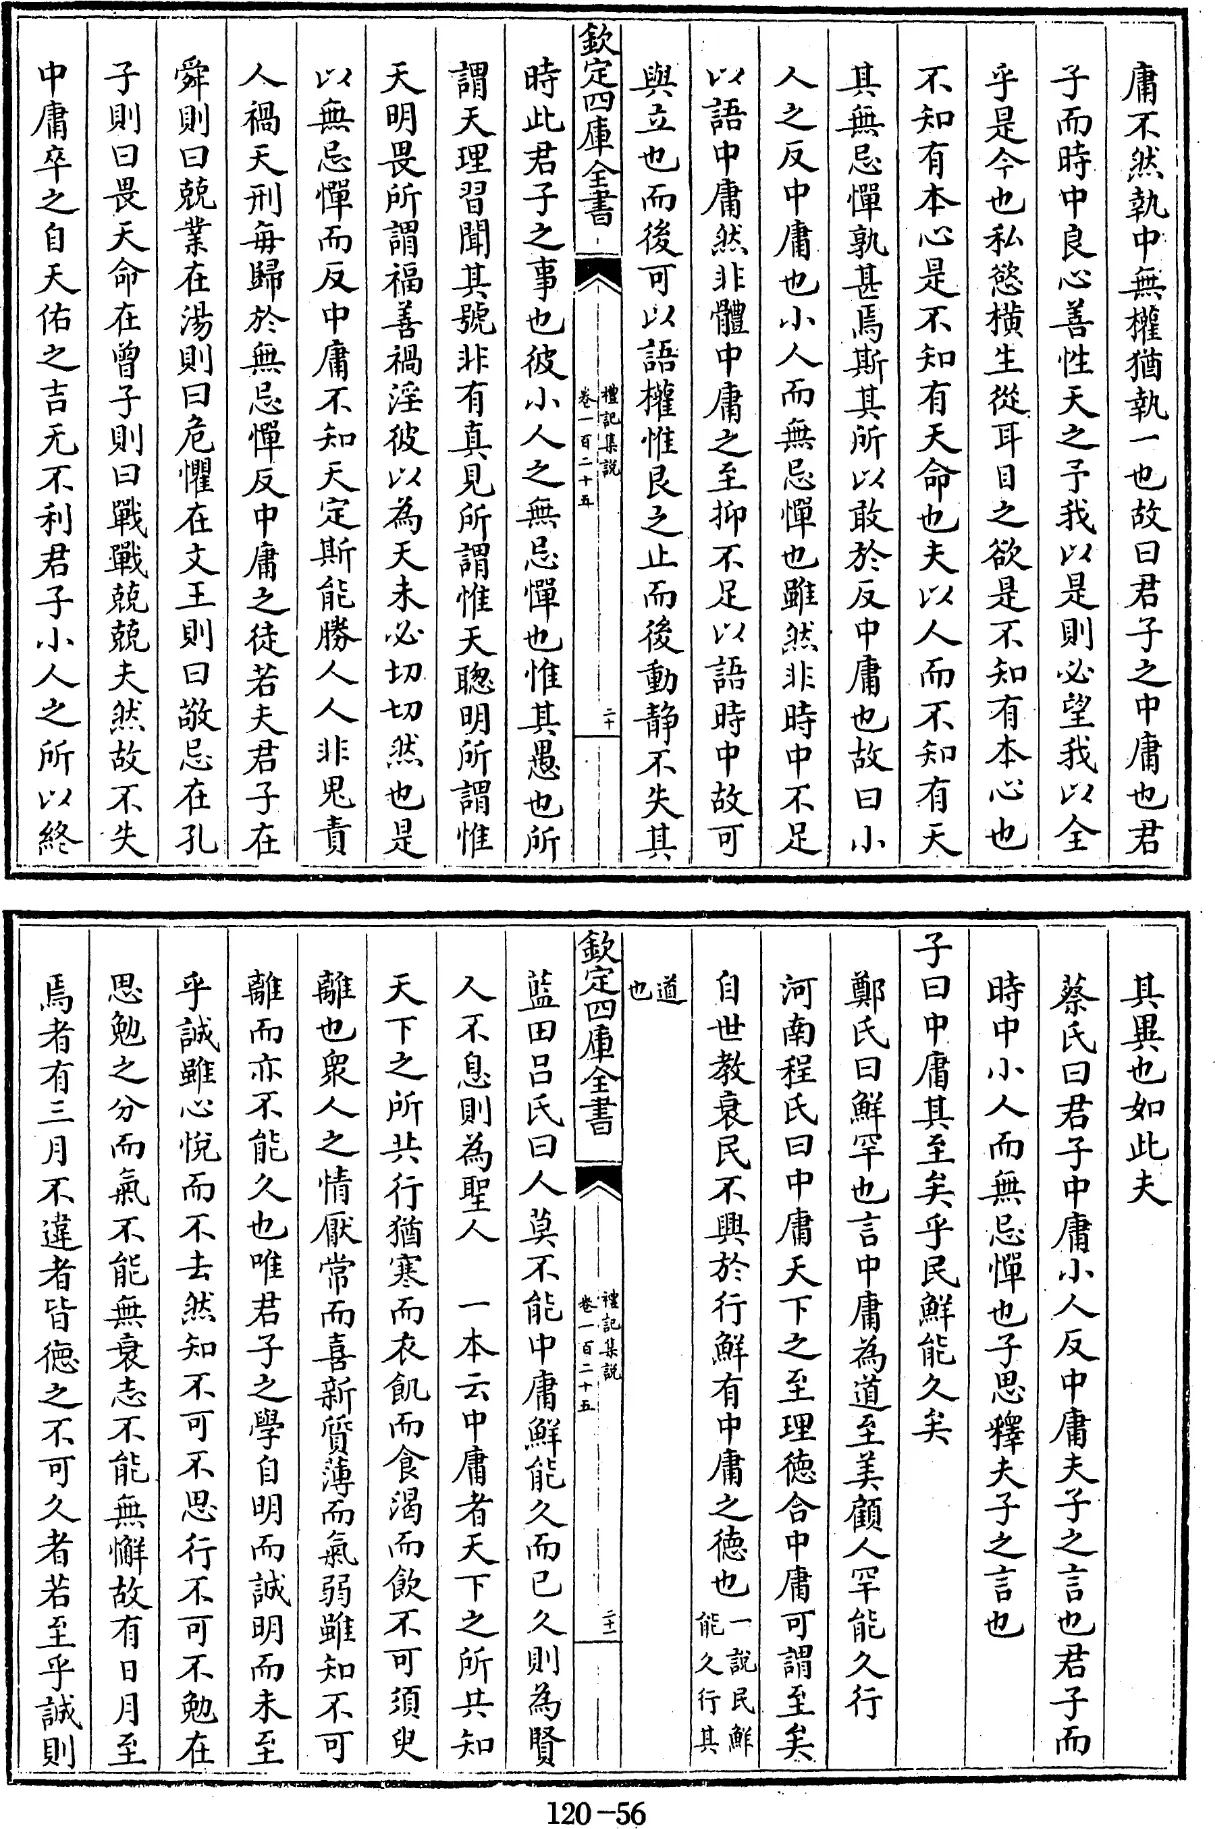 庸不然執中無權猶執一也故曰君子之中庸也君
子而時中良心善性天之予我以是則必望我以全
乎是今也私慾橫生從耳目之欲是不知有本心也
不知有本心是不知有天命也夫以人而不知有天
其無忌憚孰甚焉斯其所以敢於反中庸也故曰小
人之反中庸也小人而無忌憚也雖然非時中不足
以語中庸然非體中庸之至抑不足以語時中故可
與立也而後可以語權惟艮之止而後動靜不失其
欽定四庫全書
禮記集說
卷一百二十五
二十
時此君子之事也彼小人之無忌憚也惟其愚也所
謂天理習聞其號非有真見所謂惟天聰明所謂惟
天明畏所謂福善禍淫彼以為天未必切切然也是
以無忌憚而反中庸不知天定斯能勝人人非鬼責
人禍天刑每歸於無忌憚反中庸之徒若夫君子在
舜則曰兢業在湯則曰危懼在文王則曰敬忌在孔
子則曰畏天命在曾子則曰戰戰兢兢夫然故不失
中庸卒之自天佑之吉无不利君子小人之所以終
其異也如此夫
蔡氏曰君子中庸小人反中庸夫子之言也君子而
時中小人而無忌憚也子思釋夫子之言也
子曰中庸其至矣乎民鮮能久矣
鄭氏曰鮮罕也言中庸為道至美顧人罕能久行
河南程氏曰中庸天下之至理德合中庸可謂至矣
自世教衰民不興於行鮮有中庸之德也一說民鮮
能久行其
道
也
欽定四庫全書
禮記集說
卷一百二十五
二十一
藍田呂氏曰人莫不能中庸鮮能久而已久則為賢
人不息則為聖人 一本云中庸者天下之所共知
天下之所共行猶寒而衣飢而食渴而飲不可須臾
離也衆人之情厭常而喜新質薄而氣弱雖知不可
離而亦不能久也唯君子之學自明而誠明而未至
乎誠雖心悅而不去然知不可不思行不可不勉在
思勉之分而氣不能無衰志不能無懈故有日月至
焉者有三月不違者皆德之不可久者若至乎誠則
120-56